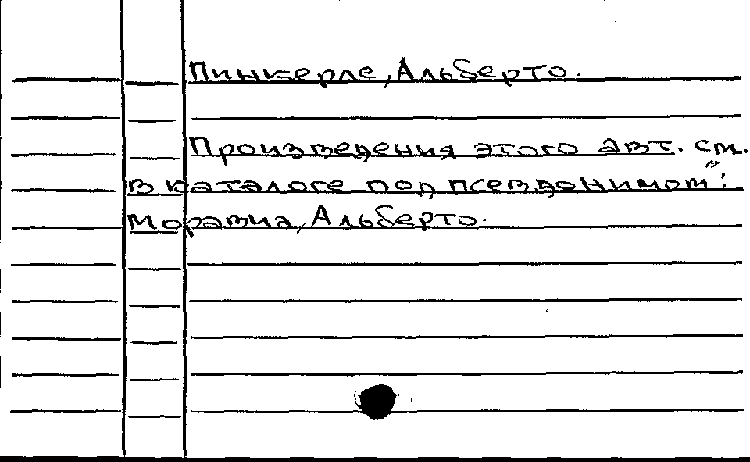 Пинкерле, Альберто.
Произведения этого авт. см.
в каталоге под псевдонимом":
Моравиа, Альберто.